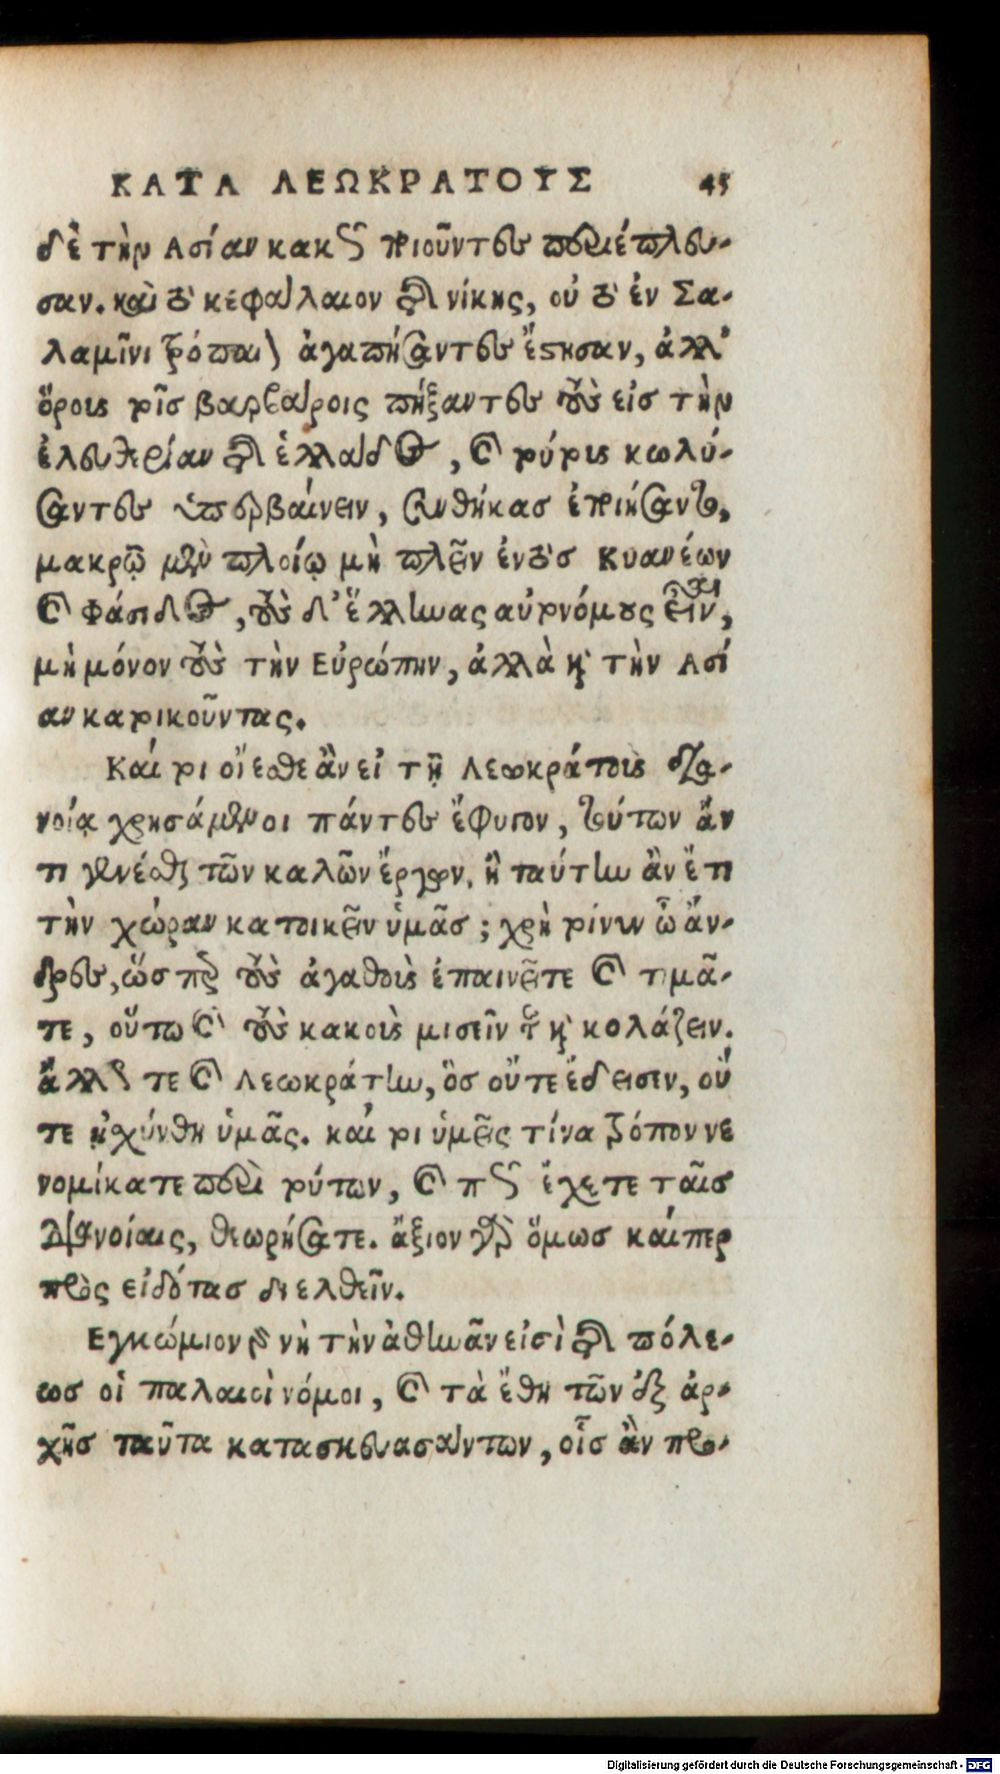 ΚΑΤΑ ΛΕΩΚΡΑΤΟΥΣ 45
δὲ τὴν Ασίαν κακῶς ποιοῦντες περιέπλευ-
σαν. καὶ τὸ κεφάλαιον τῆς νίκης, οὐ τὸ ἐν Σα-
λαμῖνι τρόπαιον ἀγαπήσαντες ἔστησαν, ἀλλ'
ὅρους τοῖς βαρβάροις πήξαντες τοὺς εἰς τὴν
ἐλευθερίαν τῆς ἑλλάδος, καὶ τούτους κωλύ-
σαντες ὑπερβαίνειν, συνθήκας ἐποιήσαντο,
μακρῷ μὲν πλοίῳ μὴ πλεῖν ἐντὸς Κυανέων
καὶ Φάσιδος, τοὺς δ' ἕλληνας αὐτονόμους εἶναι,
μὴ μόνον τοὺς τὴν Εὐρώπην, ἀλλὰ καὶ τὴν Ασί
αν κατοικοῦντας.
Καί τοι οἴεσθε ἂν εἰ τῇ Λεωκράτους δια-
νοίᾳ χρησάμενοι πάντες ἔφυγον, τούτων ἄν
τι γενέσθαι τῶν καλῶν ἔργων, ἢ ταύτην ἂν ἔτι
τὴν χώραν κατοικεῖν ὑμᾶς; χρὴ τοίνυν ὦ ἄν-
δρες, ὥσπερ τοὺς ἀγαθοὺς ἐπαινεῖτε καὶ τιμᾶ-
τε, οὕτω καὶ τοὺς κακοὺς μισεῖν τε καὶ κολάζειν.
ἄλλως τε καὶ Λεωκράτην, ὃς οὔτε ἔδεισεν, οὔ
τε ᾐσχύνθη ὑμᾶς. καί τοι ὑμεῖς τίνα τρόπον νε
νομίκατε περὶ τούτων, καὶ πῶς ἔχετε ταῖς
διανοίαις, θεωρήσατε. ἄξιον γὰρ ὅμως καίπερ
πρὸς εἰδότας διελθεῖν.
Εγκώμιον γὰρ νὴ τὴν ἀθηνᾶν εἰσὶ τῆς πόλε-
ως οἱ παλαιοὶ νόμοι, καὶ τὰ ἔθη τῶν ἐξ ἀρ-
χῆς ταῦτα κατασκευασάντων, οἷς ἂν προ-
Digitalisierung gefördert durch die Deutsche Forschungsgemeinschaft - DFG